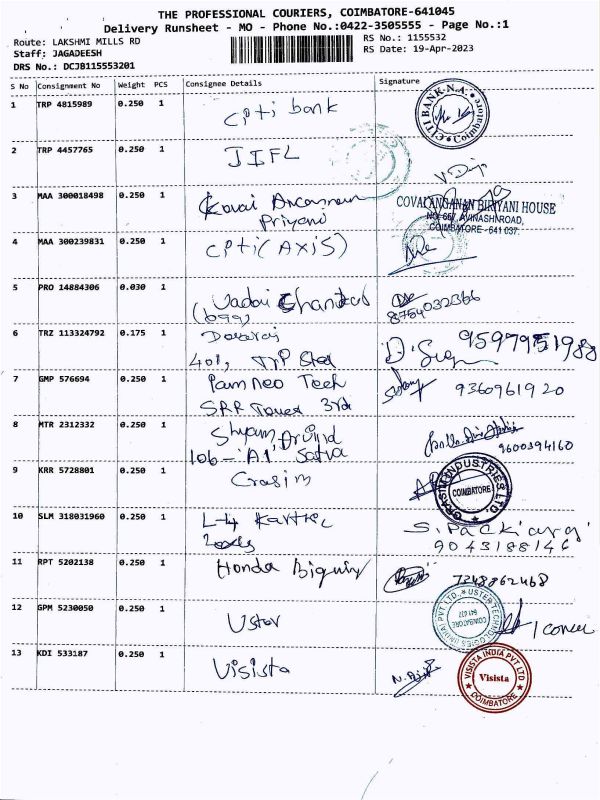 THE PROFESSIONAL COURIERS, COIMBATORE-641045
Delivery Runsheet - MO - Phone No.:0422-3505555 - Page No.:1
Route: LAKSHMI MILLS RD
RS No.: 1155532
Staff: JAGADEESH
RS Date: 19-Apr-2023
DRS No.: DCJB115553201
S No Consignment No Weight PCS Consignee Details Signature
1 TRP 4815989 0.250 1 Citi bank
CITIBANK-N.A. Coimbatore
2 TRP 4457765 0.250 1 IIFL
3 MAA 300018498 0.250 1 Kovai
COVAI ANJANAN BIRIYANI HOUSE
NO: 667, AVINASHI ROAD,
COIMBATORE - 641 037.
4 MAA 300239831 0.250 1 Citi (AXIS)
5 PRO 14884306 0.030 1
8754032366
6 TRZ 113324792 0.175 1
401,
7 GMP 576694 0.250 1 Pam Neo Tech
9360961920
SRR Tower 3rd
8 MTR 2312332 0.250 1 Shyam Arvind
106-'A1'
9600394160
9 KRR 5728801 0.250 1 Grasim
GRASIM INDUSTRIES LTD COIMBATORE
10 SLM 318031960 0.250 1
9043188146
11 RPT 5202138 0.250 1 Honda
7248862468
12 GPM 5230050 0.250 1 Uster
USTER TECHNOLOGIES (INDIA) PVT LTD. COIMBATORE
13 KDI 533187 0.250 1 Visista
VISISTA INDIA PVT LTD Visista COIMBATORE